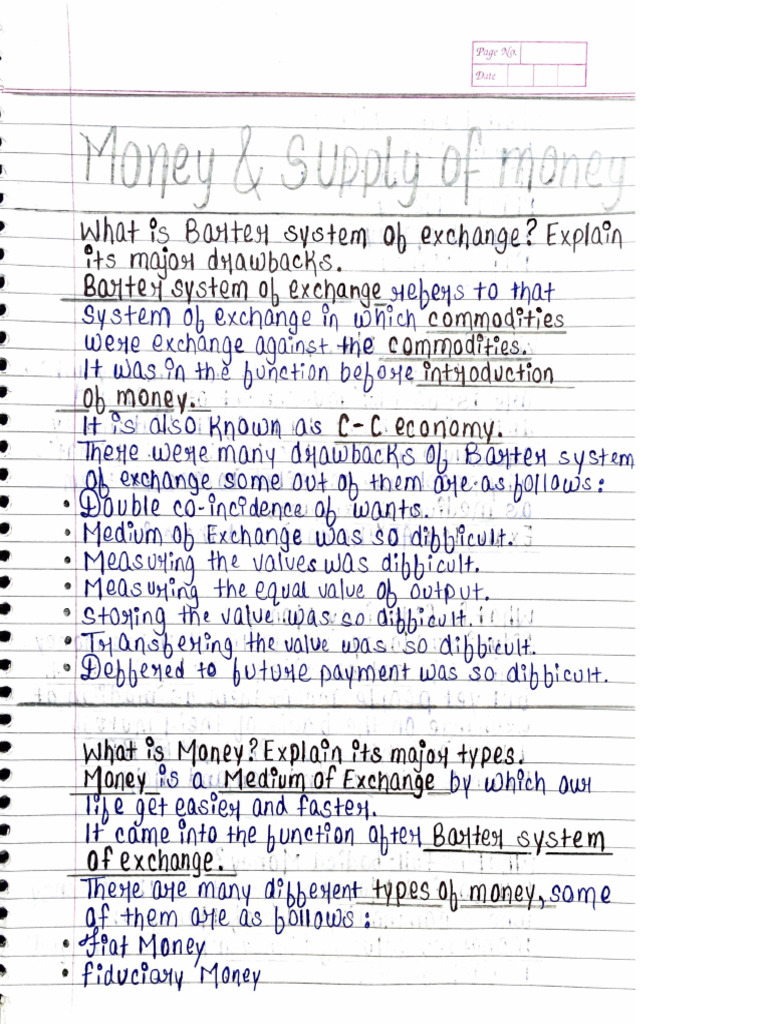 Page No.
Date
Money & Supply of money
What is Barter system of exchange? Explain
its major drawbacks.
Barter system of exchange refers to that
System of exchange in which commodities
were exchange against the commodities.
It was in the function before introduction
of money.
It is also known as C-C economy.
There were many drawbacks of Barter system
of exchange some out of them are as follows:
• Double co-incidence of wants.
• Medium of Exchange was so difficult.
• Measuring the values was difficult.
• Measuring the equal value of output.
• Storing the value was so difficult.
• Transfering the value was so difficult.
• Deffered to future payment was so difficult.
What is Money? Explain its major types.
Money is a Medium of Exchange by which our
life get easier and faster.
It came into the function after Barter system
of exchange.
There are many different types of money, some
of them are as follows:
• Fiat Money
• Fiduciary Money